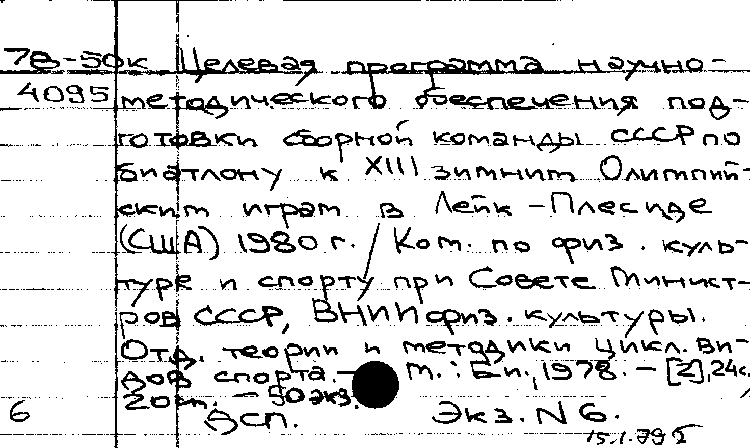 78-50к Целевая программа научно-
4095 методического обеспечения под-
готовки сборной команды СССР по
биатлону к XIII зимним Олимпий-
ским играм в Лейк-Плесиде
(США) 1980 г. / Ком. по физ. куль-
туре и спорту при Совете Минист-
ров СССР, ВНИИ физ. культуры.
Отд. теории и методики цикл. ви-
дов спорта. - М.: Б.и., 1978. - [2], 24 с.
20 см. - 50 экз.
6 Экз. N 6.